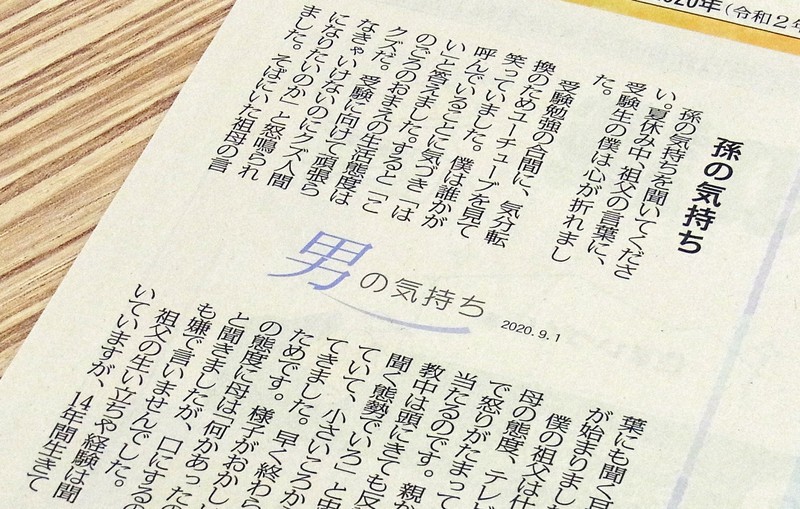 2020年(令和2年
孫の気持ち
孫の気持ちを聞いてくださ
い。夏休み中、祖父の言葉に、
受験生の僕は心が折れまし
た。
受験勉強の合間に、気分転
換のためユーチューブを見て
笑っていました。僕は誰かが
呼んでいることに気づき「は
い」と答えました。すると「こ
のごろのおまえの生活態度は
クズだ。受験に向けて頑張ら
なきゃいけないのにクズ人間
になりたいのか」と怒鳴られ
ました。そばにいた祖母の言
男の気持ち
2020.9.1
葉にも聞く耳
が始まりました
僕の祖父は仕
母の態度、テレビ
で怒りがたまって
当たるのです。親が
教中は頭にきても反
聞く態勢でいろ」と思
ていて、小さいころか
てきました。早く終わら
ためです。様子がおかし
の態度に母は「何かあったの
と聞きましたが、口にするの
も嫌で言いませんでした。
祖父の生い立ちや経験は聞
いていますが、14年間生きて